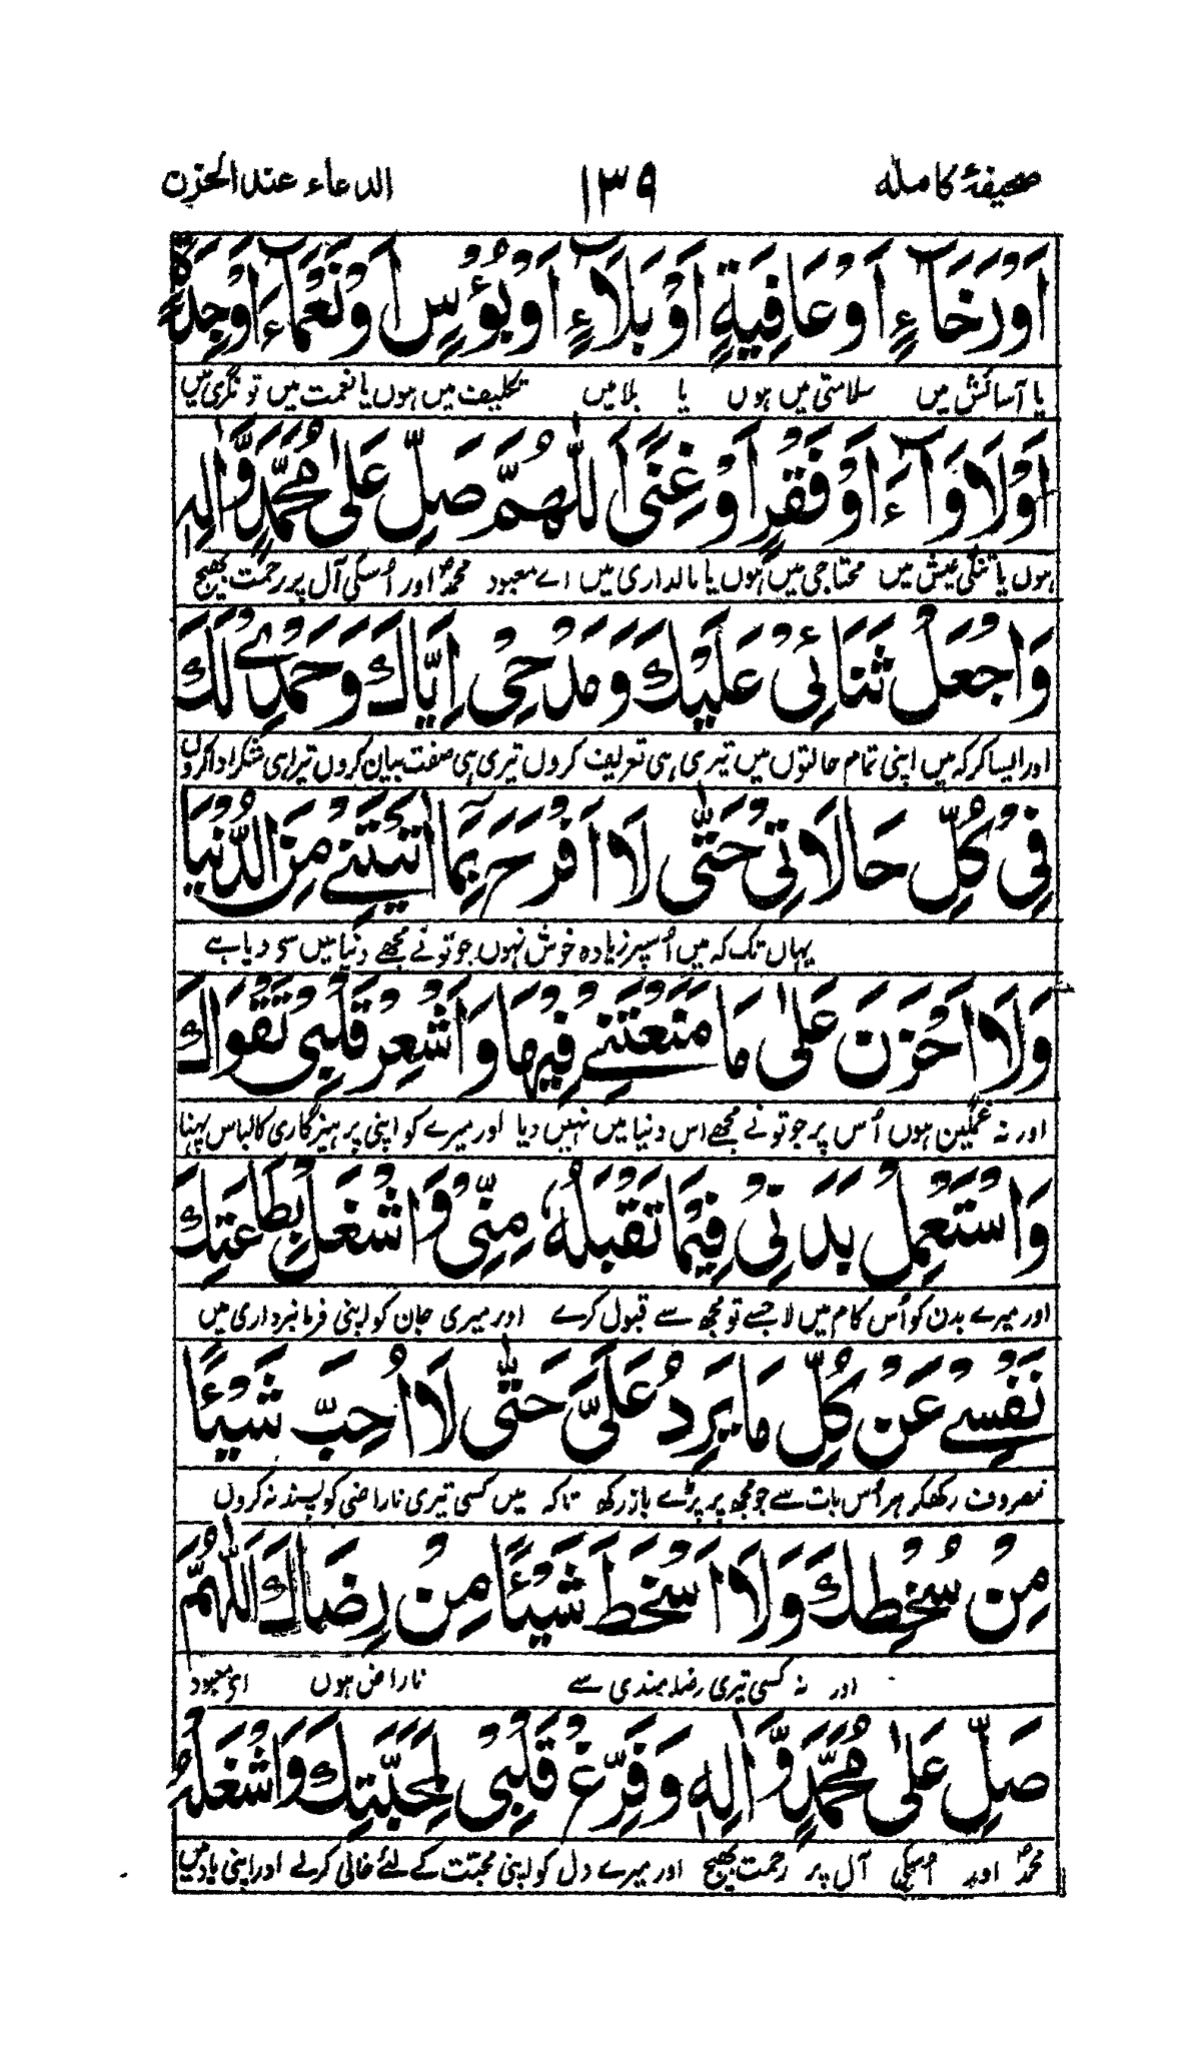 صحیفۂ کاملہ ۱۳۹ الدعاء عندالحزن
اَوْرَخَآءٍ اَوْعَافِیَةٍ اَوْبَلَآءٍ اَوْبُؤْسٍ اَوْنَعْمَآءَ اَوْجِدَةٍ
یا آسائش میں سلامتی میں ہوں یا بلا میں تکلیف میں ہوں یا نعمت میں تونگری میں
اَوْلَاْوَآءَ اَوْفَقْرٍ اَوْغِنًی اَللّٰهُمَّ صَلِّ عَلٰی مُحَمَّدٍ وَّاٰلِهٖ
ہوں یا تنگی عیش میں محتاجی میں ہوں یا مالداری میں اے معبود محمدؐ اور اُسکی آل پر رحمت بھیج
وَاجْعَلْ ثَنَائِیْ عَلَیْكَ وَمَدْحِیْ اِیَّاكَ وَحَمْدِیْ لَكَ
اور ایسا کر کہ میں اپنی تمام حالتوں میں تیری ہی تعریف کروں تیری ہی صفت بیان کروں تیرا ہی شکر ادا کروں
فِیْ کُلِّ حَالَاتِیْ حَتّٰی لَا اَفْرَحَ بِمَا اٰتَیْتَنِیْ مِنَ الدُّنْیَا
یہاں تک کہ میں اُسپر زیادہ خوش نہوں جو تونے مجھے دنیا میں سی دیا ہے
وَلَا اَحْزَنَ عَلٰی مَا مَنَعْتَنِیْ فِیْهَا وَاَشْعِرْ قَلْبِیْ تَقْوَاكَ
اور نہ غمگین ہوں اُس پر جو تونے مجھے اس دنیا میں نہیں دیا اور میرے کو اپنی پرہیزگاری کا لباس پہنا
وَاسْتَعْمِلْ بَدَنِیْ فِیْمَا تَقْبَلُهٗ مِنِّیْ وَاشْغَلْ بِطَاعَتِكَ
اور میرے بدن کو اُس کام میں لا جسے تو مجھ سے قبول کرے اور میری جان کو اپنی فرمانبرداری میں
نَفْسِیْ عَنْ کُلِّ مَا یَرِدُ عَلَیَّ حَتّٰی لَا اُحِبَّ شَیْئًا
مصروف رکھکر ہر اُس بات سے جو مجھ پر پڑے باز رکھ تاکہ میں کسی تیری ناراضی کو پسند نہ کروں
مِنْ سُخْطِكَ وَلَا اَسْخَطَ شَیْئًا مِنْ رِضَاكَ اَللّٰهُمَّ
اور نہ کسی تیری رضامندی سے ناراض ہوں ای معبود
صَلِّ عَلٰی مُحَمَّدٍ وَّاٰلِهٖ وَفَرِّغْ قَلْبِیْ لِمَحَبَّتِكَ وَاشْغَلْهُ
محمدؐ اور اُسکی آل پر رحمت بھیج اور میرے دل کو اپنی محبّت کے لئے خالی کرلے اور اپنی یاد میں